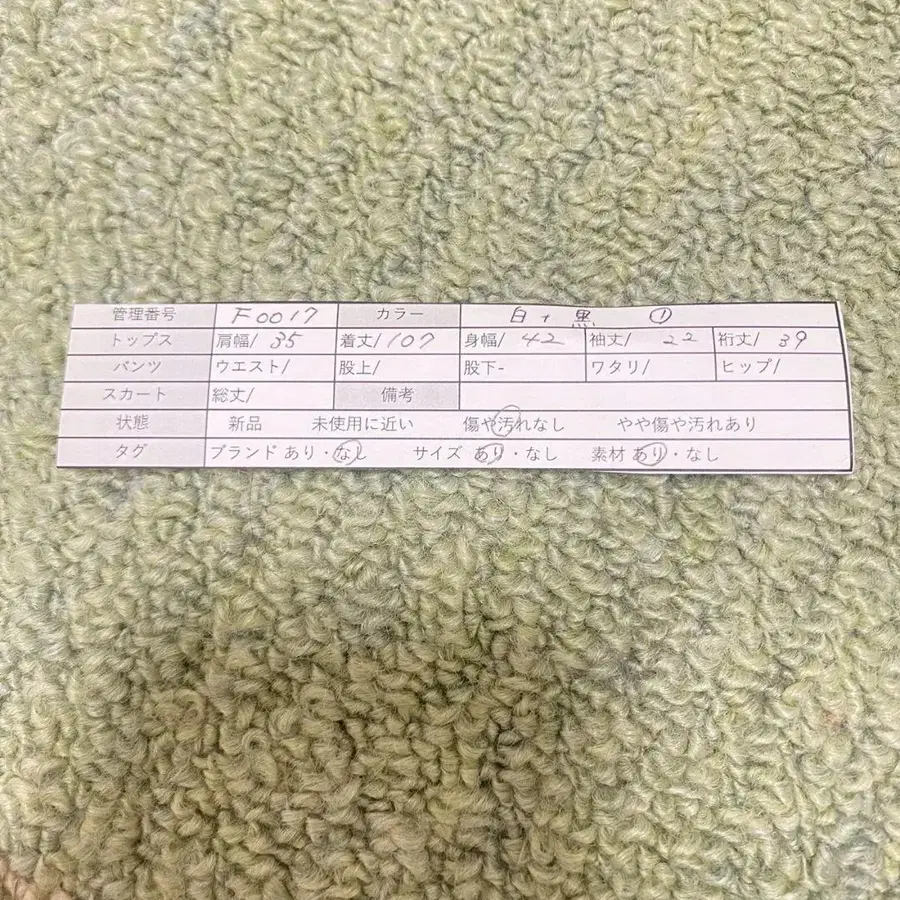 管理番号 F0017 カラー 白+黒 ①
トップス 肩幅/ 35 着丈/ 107 身幅/ 42 袖丈/ 22 裄丈/ 39
パンツ ウエスト/ 股上/ 股下- ワタリ/ ヒップ/
スカート 総丈/ 備考
状態 新品 未使用に近い 傷や汚れなし やや傷や汚れあり
タグ ブランド あり・なし サイズ あり・なし 素材 あり・なし